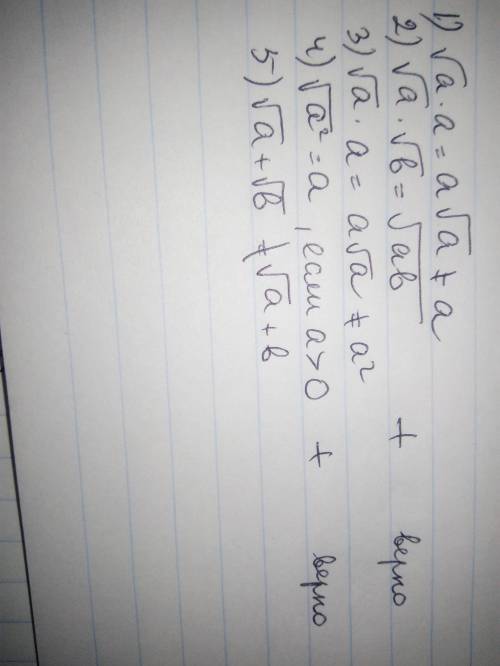 1) √a · a = a√a ≠ a
2) √a · √b = √ab + верно
3) √a · a = a√a ≠ a²
4) √a² = a, если a > 0 + верно
5) √a + √b ≠ √a + b